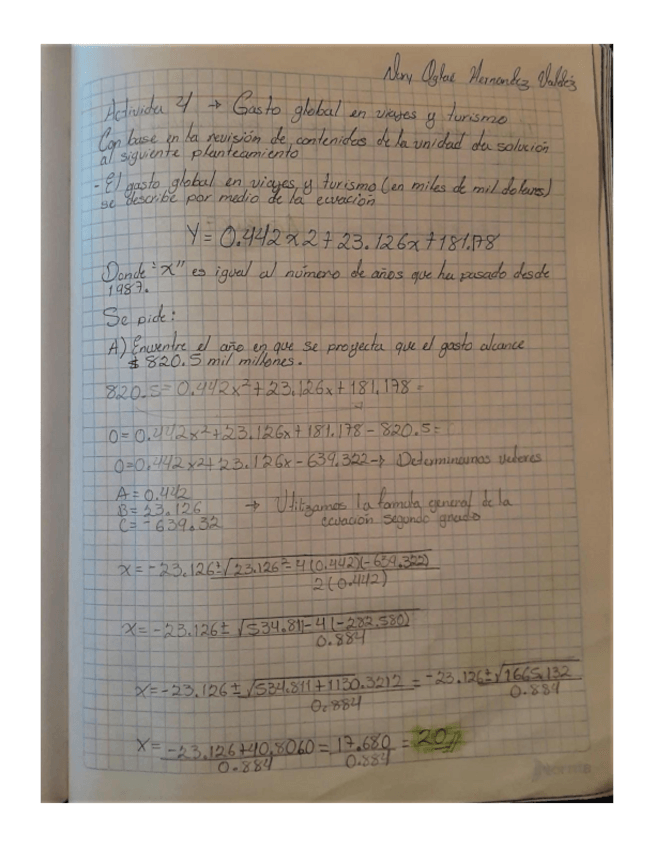 Nery Oglae Hernandez Valdéz
Actividad 4 → Gasto global en viajes y turismo
Con base en la revisión de contenidos de la unidad da solución
al siguiente planteamiento
- El gasto global en viajes y turismo (en miles de mil dolares)
se describe por medio de la ecuación
Y = 0.442x2 + 23.126x + 181.178
Donde "x" es igual al número de años que ha pasado desde
1987.
Se pide:
A) Encuentre el año en que se proyecta que el gasto alcance
$ 820.5 mil millones.
820.5 = 0.442x² + 23.126x + 181.178 =
0 = 0.442x² + 23.126x + 181.178 - 820.5 =
0 = 0.442x² + 23.126x - 639.322 → Determinamos valores
A = 0.442
B = 23.126 → Utilizamos la formula general de la
C = -639.32 ecuación segundo grado
x = -23.126 ± √23.126² - 4(0.442)(-639.322)
2(0.442)
x = -23.126 ± √534.811 - 4(-282.580)
0.884
x = -23.126 ± √534.811 + 1130.3212 = -23.126 ± √1665.132
0.884 0.884
x = -23.126 + 40.8060 = 17.680 = 20//
0.884 0.884